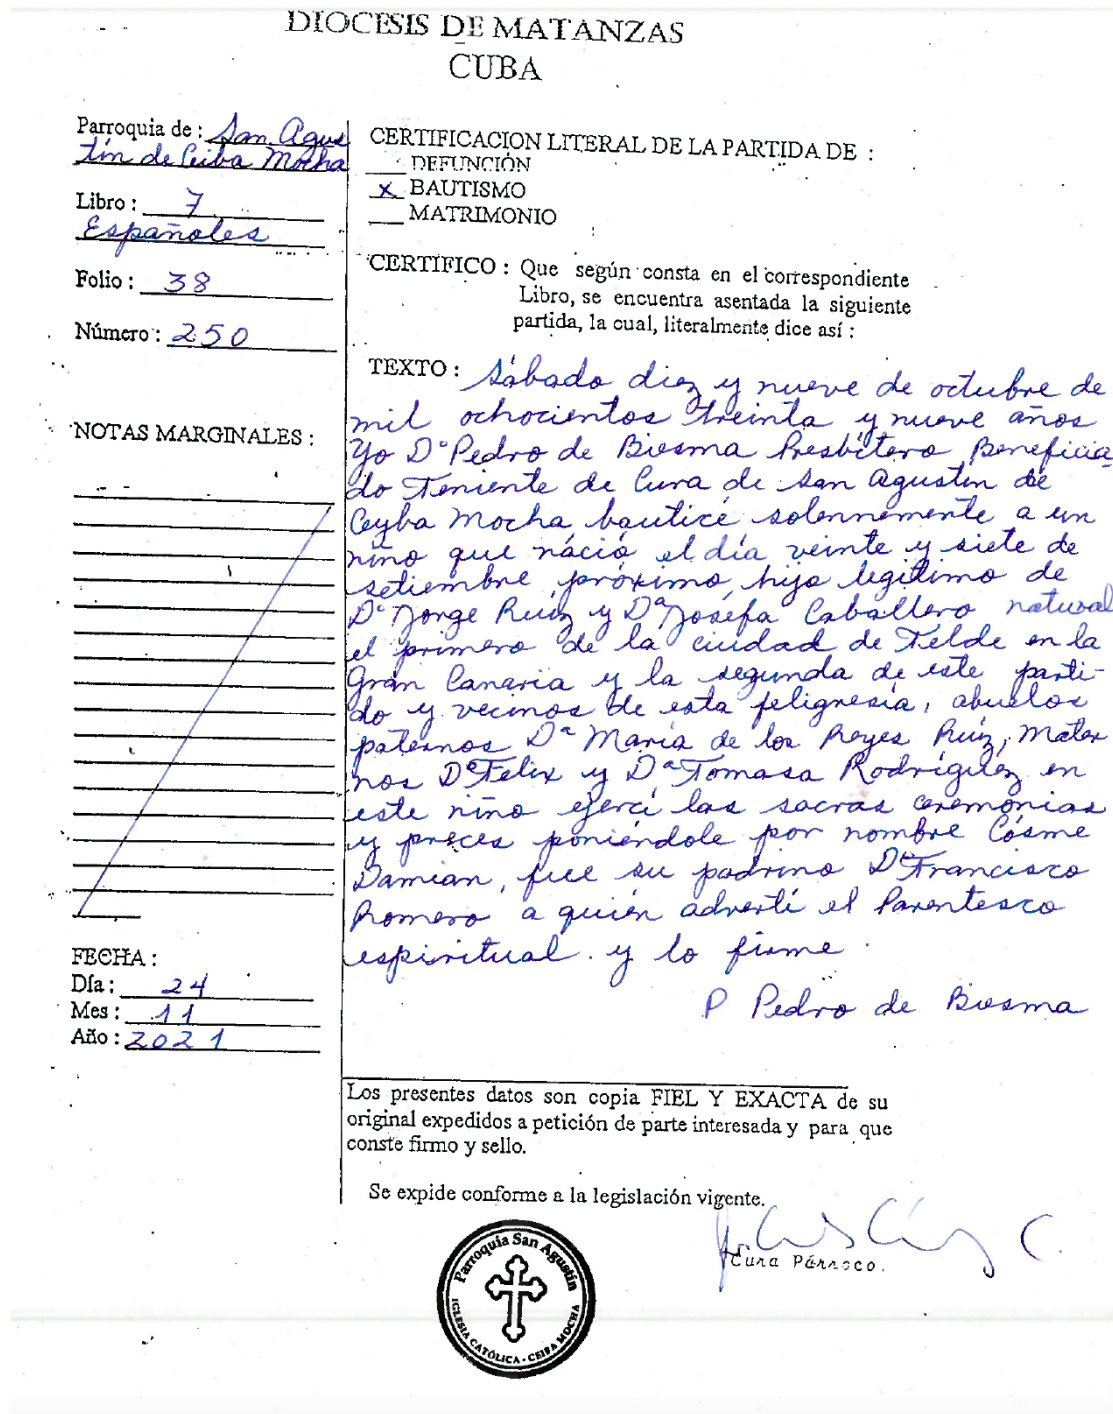 DIOCESIS DE MATANZAS
CUBA
Parroquia de : San Agus
tín de Ceiba Mocha
Libro : 7
Españoles
Folio : 38
Número : 250
NOTAS MARGINALES :
FECHA :
Día : 24
Mes : 11
Año : 2021
CERTIFICACION LITERAL DE LA PARTIDA DE :
DEFUNCIÓN
x BAUTISMO
MATRIMONIO
CERTIFICO : Que según consta en el correspondiente
Libro, se encuentra asentada la siguiente
partida, la cual, literalmente dice así :
TEXTO : Sábado diez y nueve de octubre de
mil ochocientos treinta y nueve años
Yo Dº Pedro de Biosma Presbítero Beneficia
do Teniente de Cura de San Agustín de
Ceyba Mocha bauticé solennemente a un
niño que náció el día veinte y siete de
setiembre próximo, hijo legitimo de
Dº Jorge Ruíz y Dª Joséfa Caballero natural
el primero de la ciudad de Telde en la
Gran Canaria y la segunda de este parti-
do y vecinos de esta feligresía, abuelos
paternos Dª María de los Reyes Ruíz, Mater
nos Dº Felix y Dª Tomasa Rodríguez en
este nino ejercí las sacras ceremonias
y preces poniéndole por nombre Cósme
Damian, fue su padrino Dº Francisco
Romero a quién advertí el Parentesco
espiritual. y lo firme.
P Pedro de Biosma
Los presentes datos son copia FIEL Y EXACTA de su
original expedidos a petición de parte interesada y para que
conste firmo y sello.
Se expide conforme a la legislación vigente.
Cura Párroco.
Parroquia San Agustín
IGLESIA CATÓLICA - CEIBA MOCHA